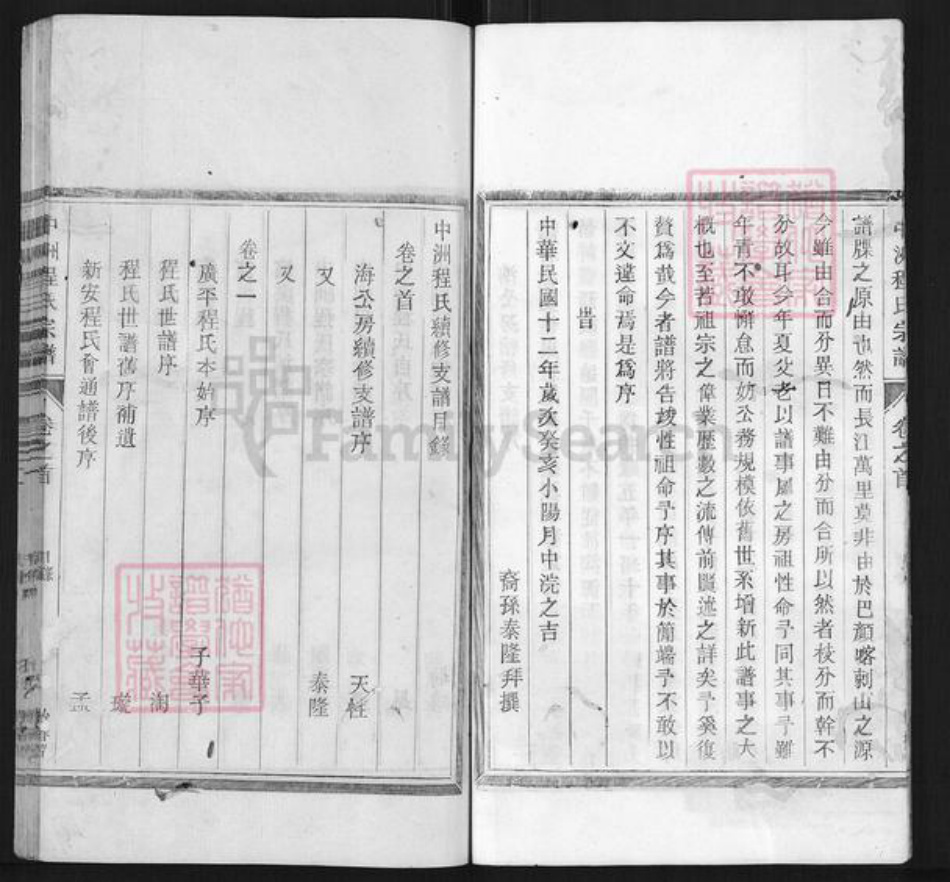 譜牒之原由也然而長江萬里莫非由於巴顏喀剌山之源
今雖由合而分異日不難由分而合所以然者枝分而幹不
分故耳今年夏父老以譜事屬之房祖性命予同其事予雖
年青不敢懈怠而妨公務規模依舊世系增新此譜事之大
概也至若祖宗之偉業歷數之流傳前賢述之詳矣予奚復
贅爲哉今者譜將告竣性祖命予序其事於簡端予不敢以
不文違命焉是爲序
旹
中華民國十二年歲次癸亥小陽月中浣之吉
裔孫泰隆拜撰
中洲程氏續修支譜目錄
卷之首
海公房續修支譜序 天
又 泰隆
又
卷之一
廣平程氏本始序 子華子
程氏世譜序 淘
程氏世譜舊序補遺 璇
新安程氏會通譜後序 孟
中洲程氏宗譜 卷之首
FamilySearch